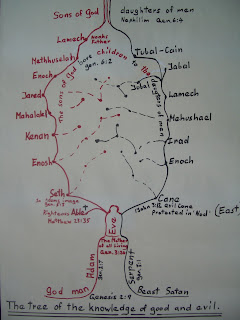 Sons of God
daughters of men
Nephilim Gen. 6:4
Lamech
Noahs
father
Tubal-Cain
Methhuselah
Enoch
Jabal
Jubal
Jared
Lamech
The sons of God bore children to the daughters of men
gen. 6:2
Mahalalel
Mahushael
Kenan
Irad
Enosh
Enoch
Seth
Cane
Righteous Able
Matthew 23:35
1 John 3:12 evil Cane
Protected in 'Nod' (East,
Eve
The Mother
of all living
Gen. 3:20
Adam
Serpent
god man
Genesis 2:9
Beast Satan
The tree of the knowledge of good and evil.